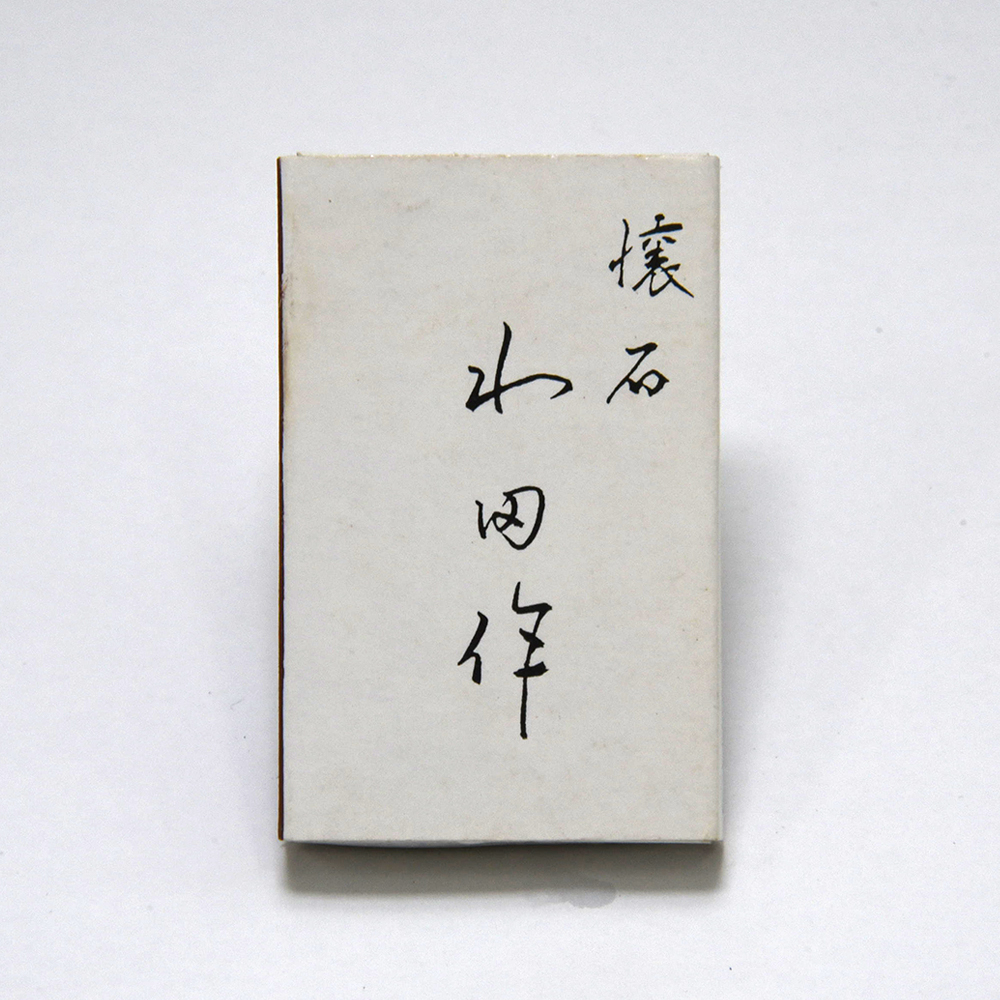 懐石
水田作